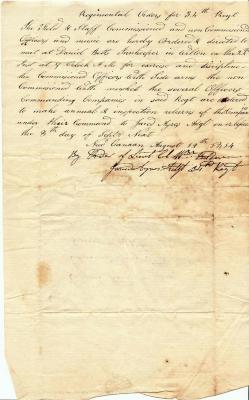 Regimental Orders for 34th Regt
The Field & Staff Commissioned and non Commissioned
Officers and music are hereby Ordered & directed to
meet at Daniel Innkeeper in Wilton on the
Inst at 9 Oclock A.M. for exercise and discipline
the Commissiond Officers with Side arms the non
Commissiond with musket the several Officers
Commanding Companies in said Regt are ordered
to make annual & inspection returns of the Companies
under their Command to Jared Ayres Adjt on or before
the day of Septr Next
New Canaan August 19th
By Order of Lieut Col Wm
Jared Ayres Adjt 34th Regt